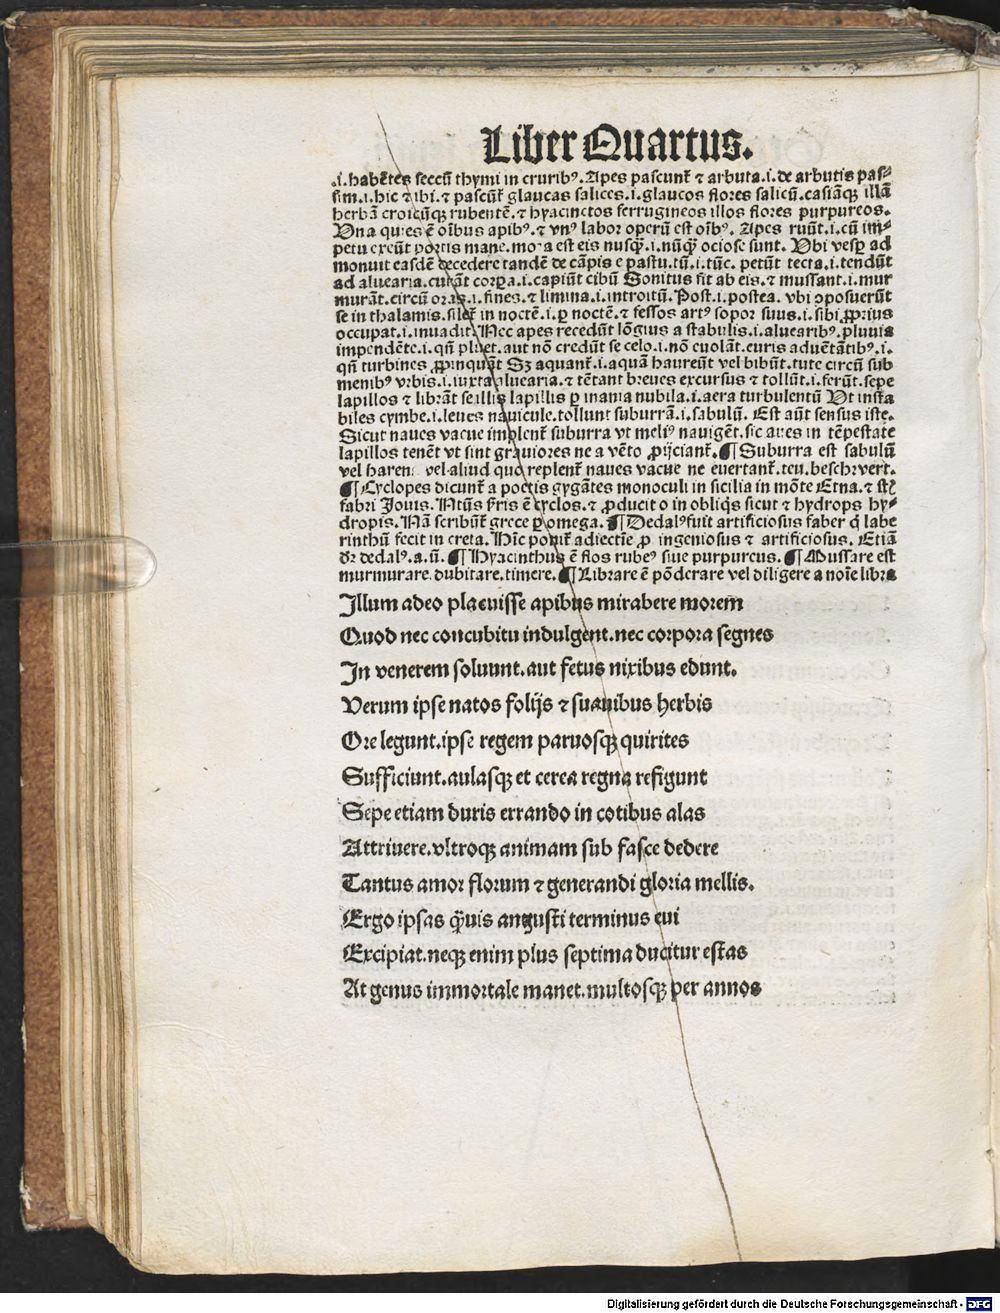 Liber Quartus.
.i. habẽtes seccũ thymi in cruribꝰ. Apes pascunt᷑ ⁊ arbuta .i. de arbutis pas⸗
sim .i. hic ⁊ ibi. ⁊ pascũt᷑ glaucas salices .i. glaucos flores salicũ. casiãqꝫ illã
herbã croicũqꝫ rubentẽ. ⁊ hyacinctos ferrugineos illos flores purpureos.
Una quies ẽ oĩbus apibꝰ. ⁊ vnꝰ labor operũ est oĩbꝰ. Apes ruũt .i. cũ im⸗
petu exeũt portis mane. mora est eis nusqꝫ̃ .i. nũqꝫ̃ ociose sunt. Ubi vesꝑ ad
monuit easdẽ decedere tandẽ de cãpis e pastu. tũ .i. tũc. petũt tecta .i. tendũt
ad aluearia. curãt corꝑa .i. capiũt cibũ Sonitus fit ab eis. ⁊ mussant .i. mur
murãt. circũ oras .i. fines. ⁊ limina .i. introitũ. Post .i. postea. vbi ↄposuerũt
se in thalamis. silet᷑ in noctẽ .i. ꝑ noctẽ. ⁊ fessos artꝰ sopor suus .i. sibi ꝓprius
occupat .i. inuadit. Nec apes recedũt lõgius a stabulis .i. aluearibꝰ. pluuia
impendẽte .i. qñ pluet. aut nõ credũt se celo .i. nõ euolãt. euris aduẽtãtibꝰ .i.
qñ turbines ꝓpinquãt Sꝫ aquant᷑ .i. aquã haureũt vel bibũt. tute circũ sub
menibꝰ vrbis .i. iuxta aluearia. ⁊ tẽtant breues excursus ⁊ tollũt .i. ferũt. sepe
lapillos ⁊ librãt se illis lapillis ꝑ inania nubila .i. aera turbulentũ Ut insta
biles cymbe .i. leues nauicule. tollunt suburrã .i. sabulũ. Est aũt sensus iste.
Sicut naues vacue implent᷑ suburra vt meliꝰ nauigẽt. sic aues in tẽpestate
lapillos tenẽt vt sint grauiores ne a vẽto ꝓijciant᷑. ¶ Suburra est sabulũ
vel haren. vel aliud quo replent᷑ naues vacue ne euertant᷑. teu. beschvert.
¶ Cyclopes dicunt᷑ a poetis gygãtes monoculi in sicilia in mõte Etna. ⁊ st᷑
fabri Jouis. Ntũs s̃ris ẽ cyclos. ⁊ ꝓducit o in obliqis sicut ⁊ hydrops hy⸗
dropis. Nã scribũt᷑ grece ꝑ omega. ¶ Dedalꝰ fuit artificiosus faber q̇ labe
rinthũ fecit in creta. Hĩc ponit᷑ adiectie ꝓ ingeniosus ⁊ artificiosus. Etiã
dr̃ dedalꝰ. a. ũ. ¶ Hyacinthus ẽ flos rubeꝰ siue purpureus. ¶ Mussare est
murmurare. dubitare. timere. ¶ Librare ẽ põderare vel diligere a noĩe libra
Illum adeo placuisse apibus mirabere morem
Quod nec concubitu indulgent. nec corpora segnes
In venerem soluunt. aut fetus nixibus edunt.
Verum ipse natos folijs ⁊ suauibus herbis
Ore legunt. ipse regem paruosqꝫ quirites
Sufficiunt. aulasqꝫ et cerea regna refigunt
Sepe etiam duris errando in cotibus alas
Attriuere. vltroqꝫ animam sub fasce dedere
Tantus amor florum ⁊ generandi gloria mellis.
Ergo ipsas q̃uis angusti terminus eui
Excipiat. neqꝫ enim plus septima ducitur estas
At genus immortale manet. multosqꝫ per annos
Digitalisierung gefördert durch die Deutsche Forschungsgemeinschaft - DFG